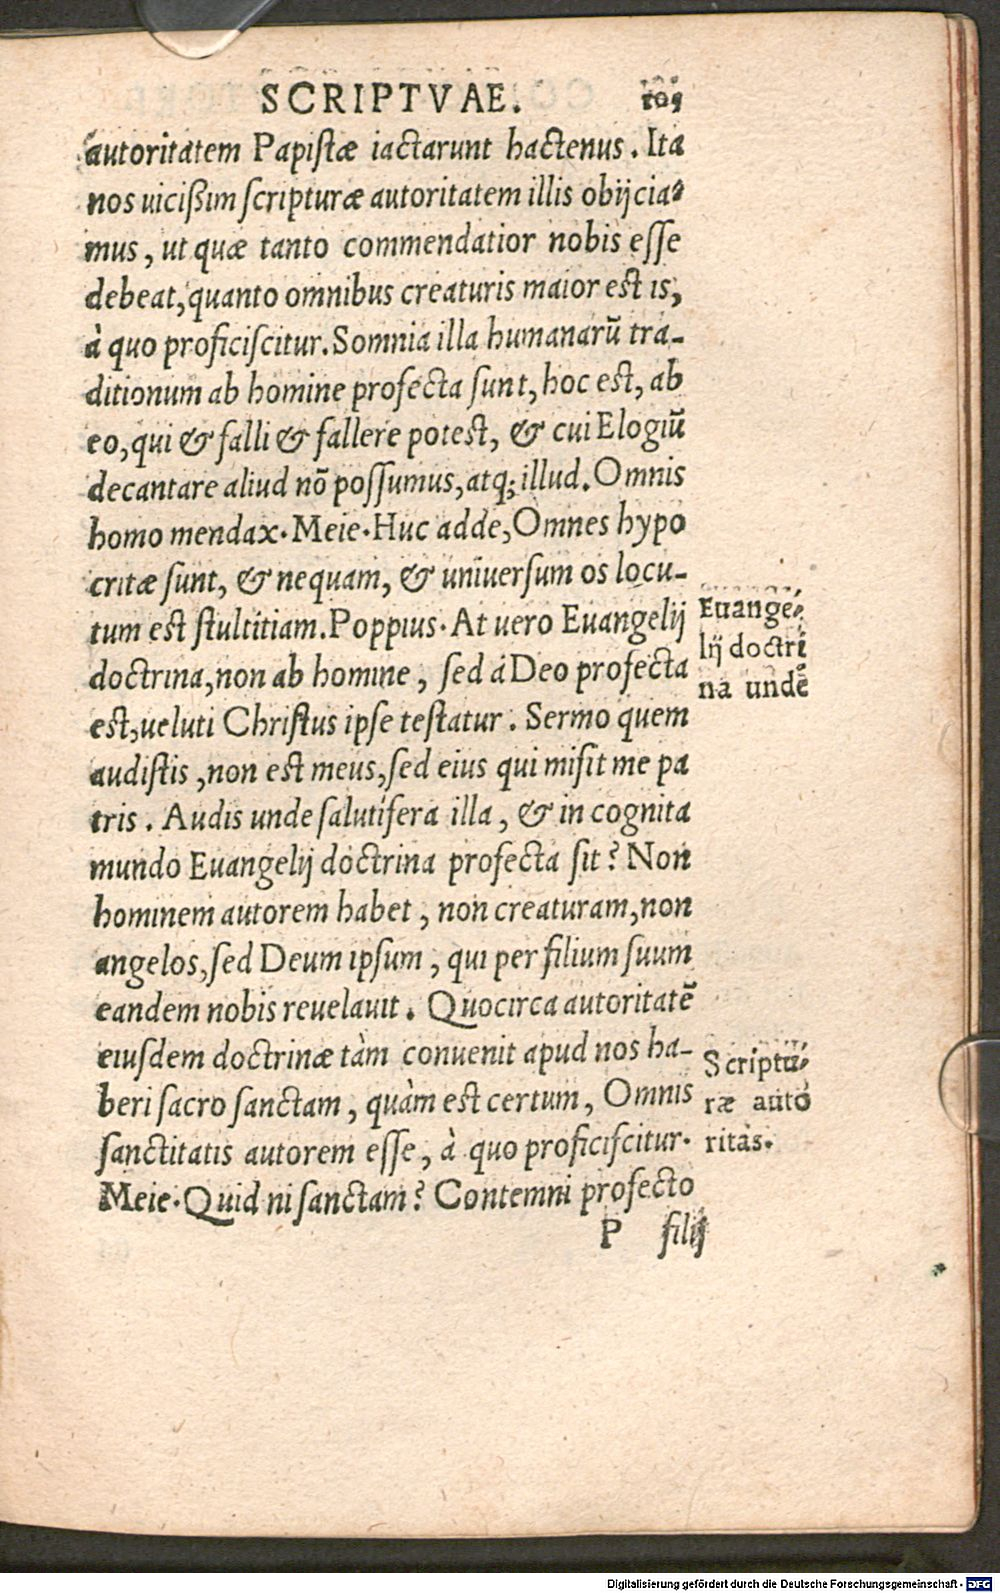 SCRIPTVAE. 105
autoritatem Papistæ iactarunt hactenus. Ita
nos uicißim scripturæ autoritatem illis obijcia-
mus, ut quæ tanto commendatior nobis esse
debeat, quanto omnibus creaturis maior est is,
à quo proficiscitur. Somnia illa humanarũ tra-
ditionum ab homine profecta sunt, hoc est, ab
eo, qui & falli & fallere potest, & cui Elogiũ
decantare aliud nõ possumus, atq; illud. Omnis
homo mendax. Meie. Huc adde, Omnes hypo
critæ sunt, & nequam, & uniuersum os locu-
tum est stultitiam. Poppius. At uero Euangelij
doctrina, non ab homine, sed á Deo profecta
est, ueluti Christus ipse testatur. Sermo quem
audistis, non est meus, sed eius qui misit me pa
tris. Audis unde salutifera illa, & in cognita
mundo Euangelij doctrina profecta sit? Non
hominem autorem habet, non creaturam, non
angelos, sed Deum ipsum, qui per filium suum
eandem nobis reuelauit. Quocirca autoritatẽ
eiusdem doctrinæ tàm conuenit apud nos ha-
beri sacro sanctam, quàm est certum, Omnis
sanctitatis autorem esse, à quo proficiscitur.
Meie. Quid ni sanctam? Contemni profecto
P filij
Euange-
lij doctri
na undẽ
Scriptu-
ræ auto
ritas.
Digitalisierung gefördert durch die Deutsche Forschungsgemeinschaft - DFG